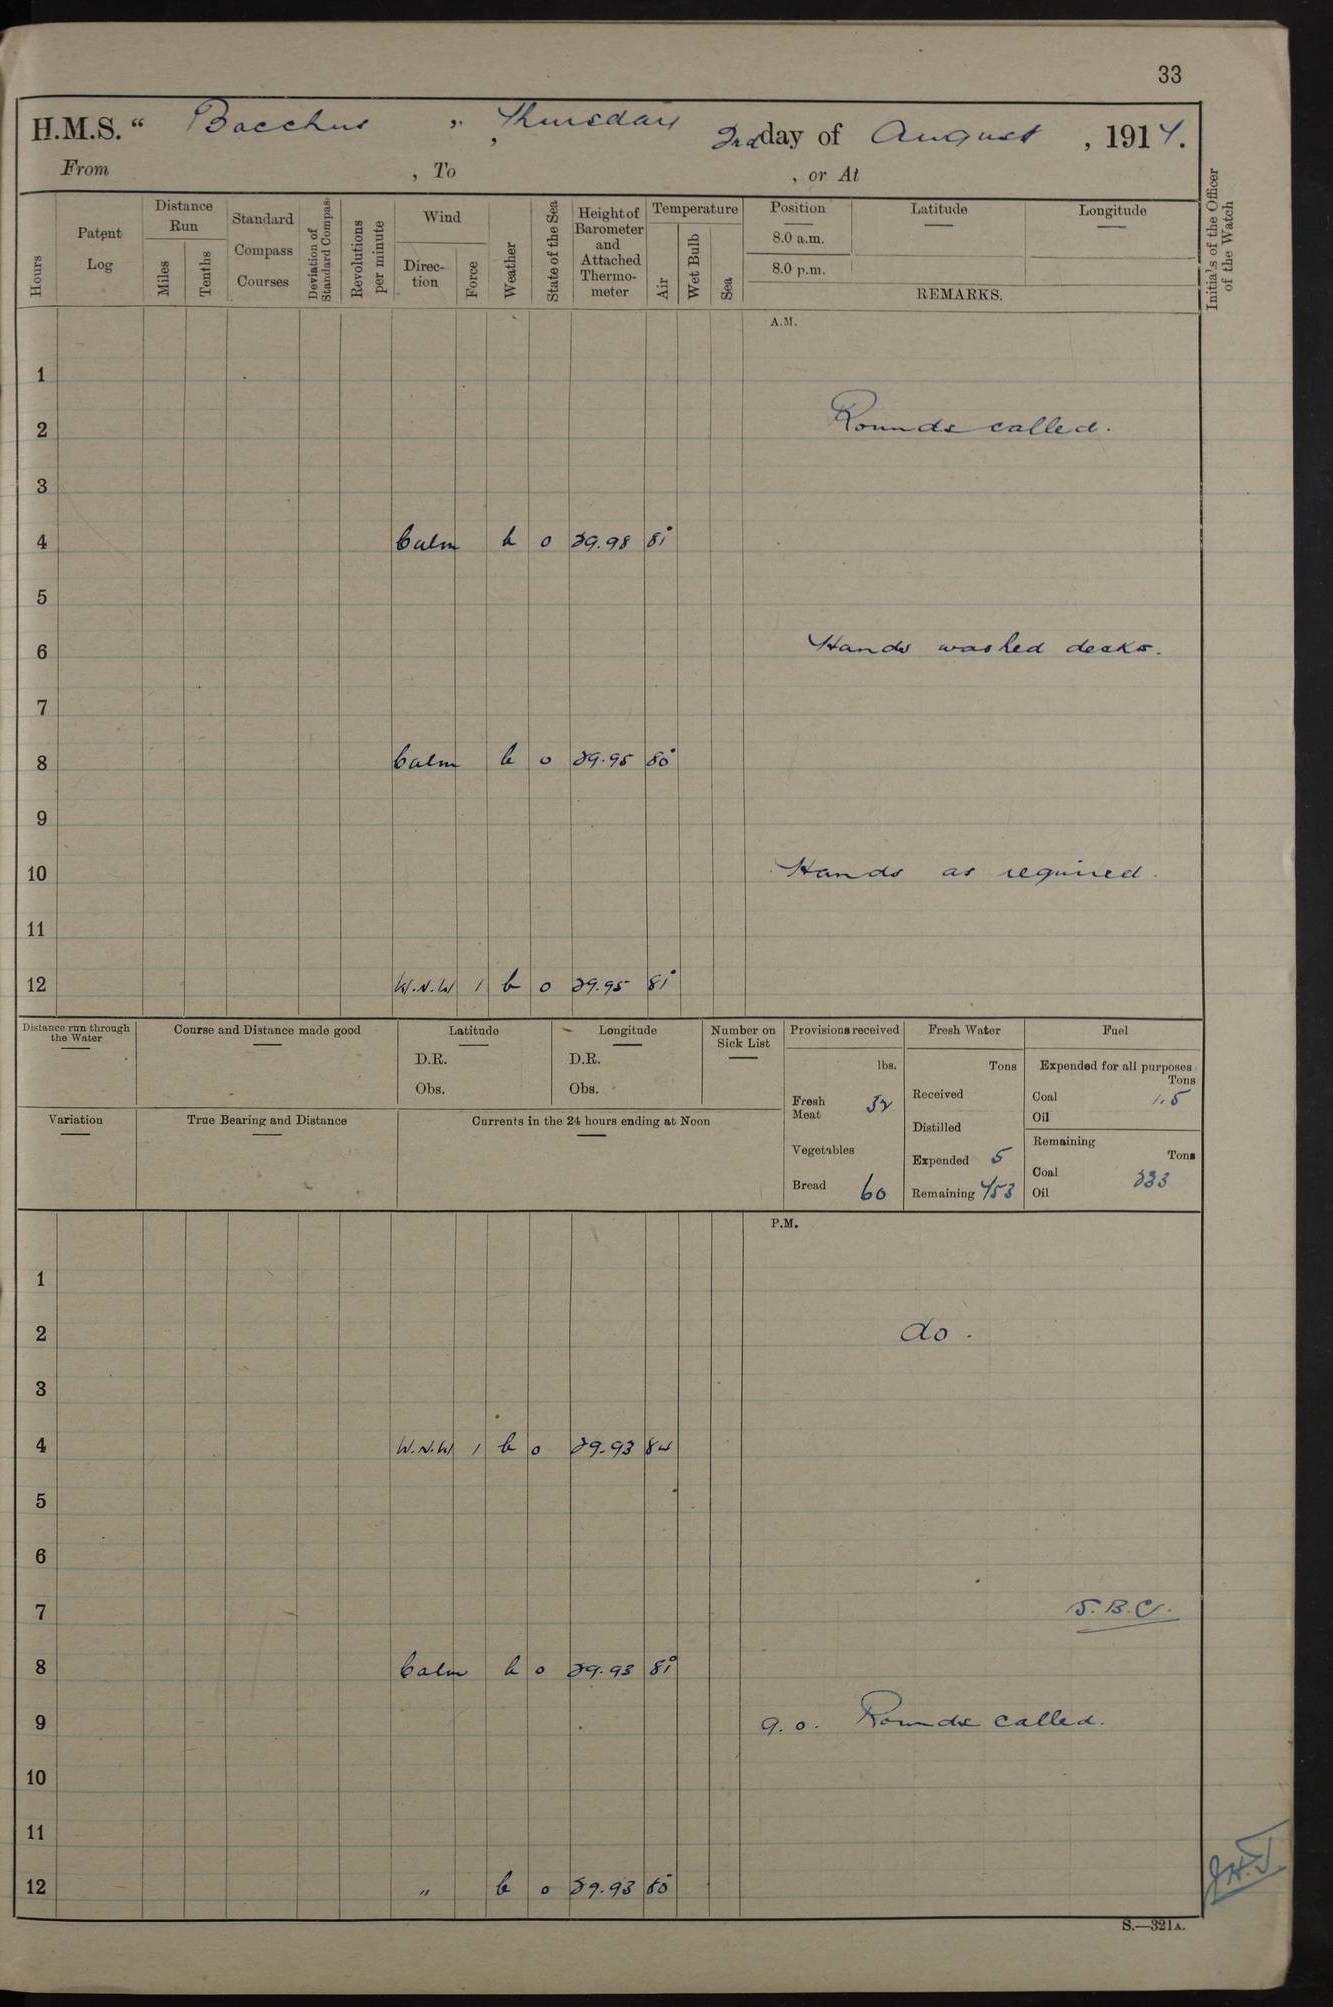 33
H.M.S. " Bacchus ", Thursday 2nd day of August, 1917.
From , To , or At
Hours
Patent Log
Distance Run
Miles
Tenths
Standard Compass Courses
Deviation of Standard Compass
Revolutions per minute
Wind
Direc-tion
Force
Weather
State of the Sea
Height of Barometer and Attached Thermo-meter
Temperature
Air
Wet Bulb
Sea
Position Latitude Longitude
8.0 a.m.
8.0 p.m.
REMARKS.
Initials of the Officer of the Watch
A.M.
1
2 Rounds called.
3
4 Calm b o 29.98 81°
5
6 Hands washed decks.
7
8 Calm b o 29.95 80°
9
10 Hands as required.
11
12 W.N.W 1 b o 29.95 81°
Distance run through the Water
Course and Distance made good
Latitude
D.R.
Obs.
Longitude
D.R.
Obs.
Number on Sick List
Variation
True Bearing and Distance
Currents in the 24 hours ending at Noon
Provisions received
lbs.
Fresh Meat 32
Vegetables
Bread 60
Fresh Water
Tons
Received
Distilled
Expended 5
Remaining 753
Fuel
Expended for all purposes
Tons
Coal 1.5
Oil
Remaining
Tons
Coal 233
Oil
P.M.
1
2 do.
3
4 W.N.W 1 b o 29.93 84
5
6
7 J.B.C.
8 Calm b o 29.93 81°
9 9.0. Rounds called.
10
11
12 " b o 29.93 80°
J.H.J
S.—321A.